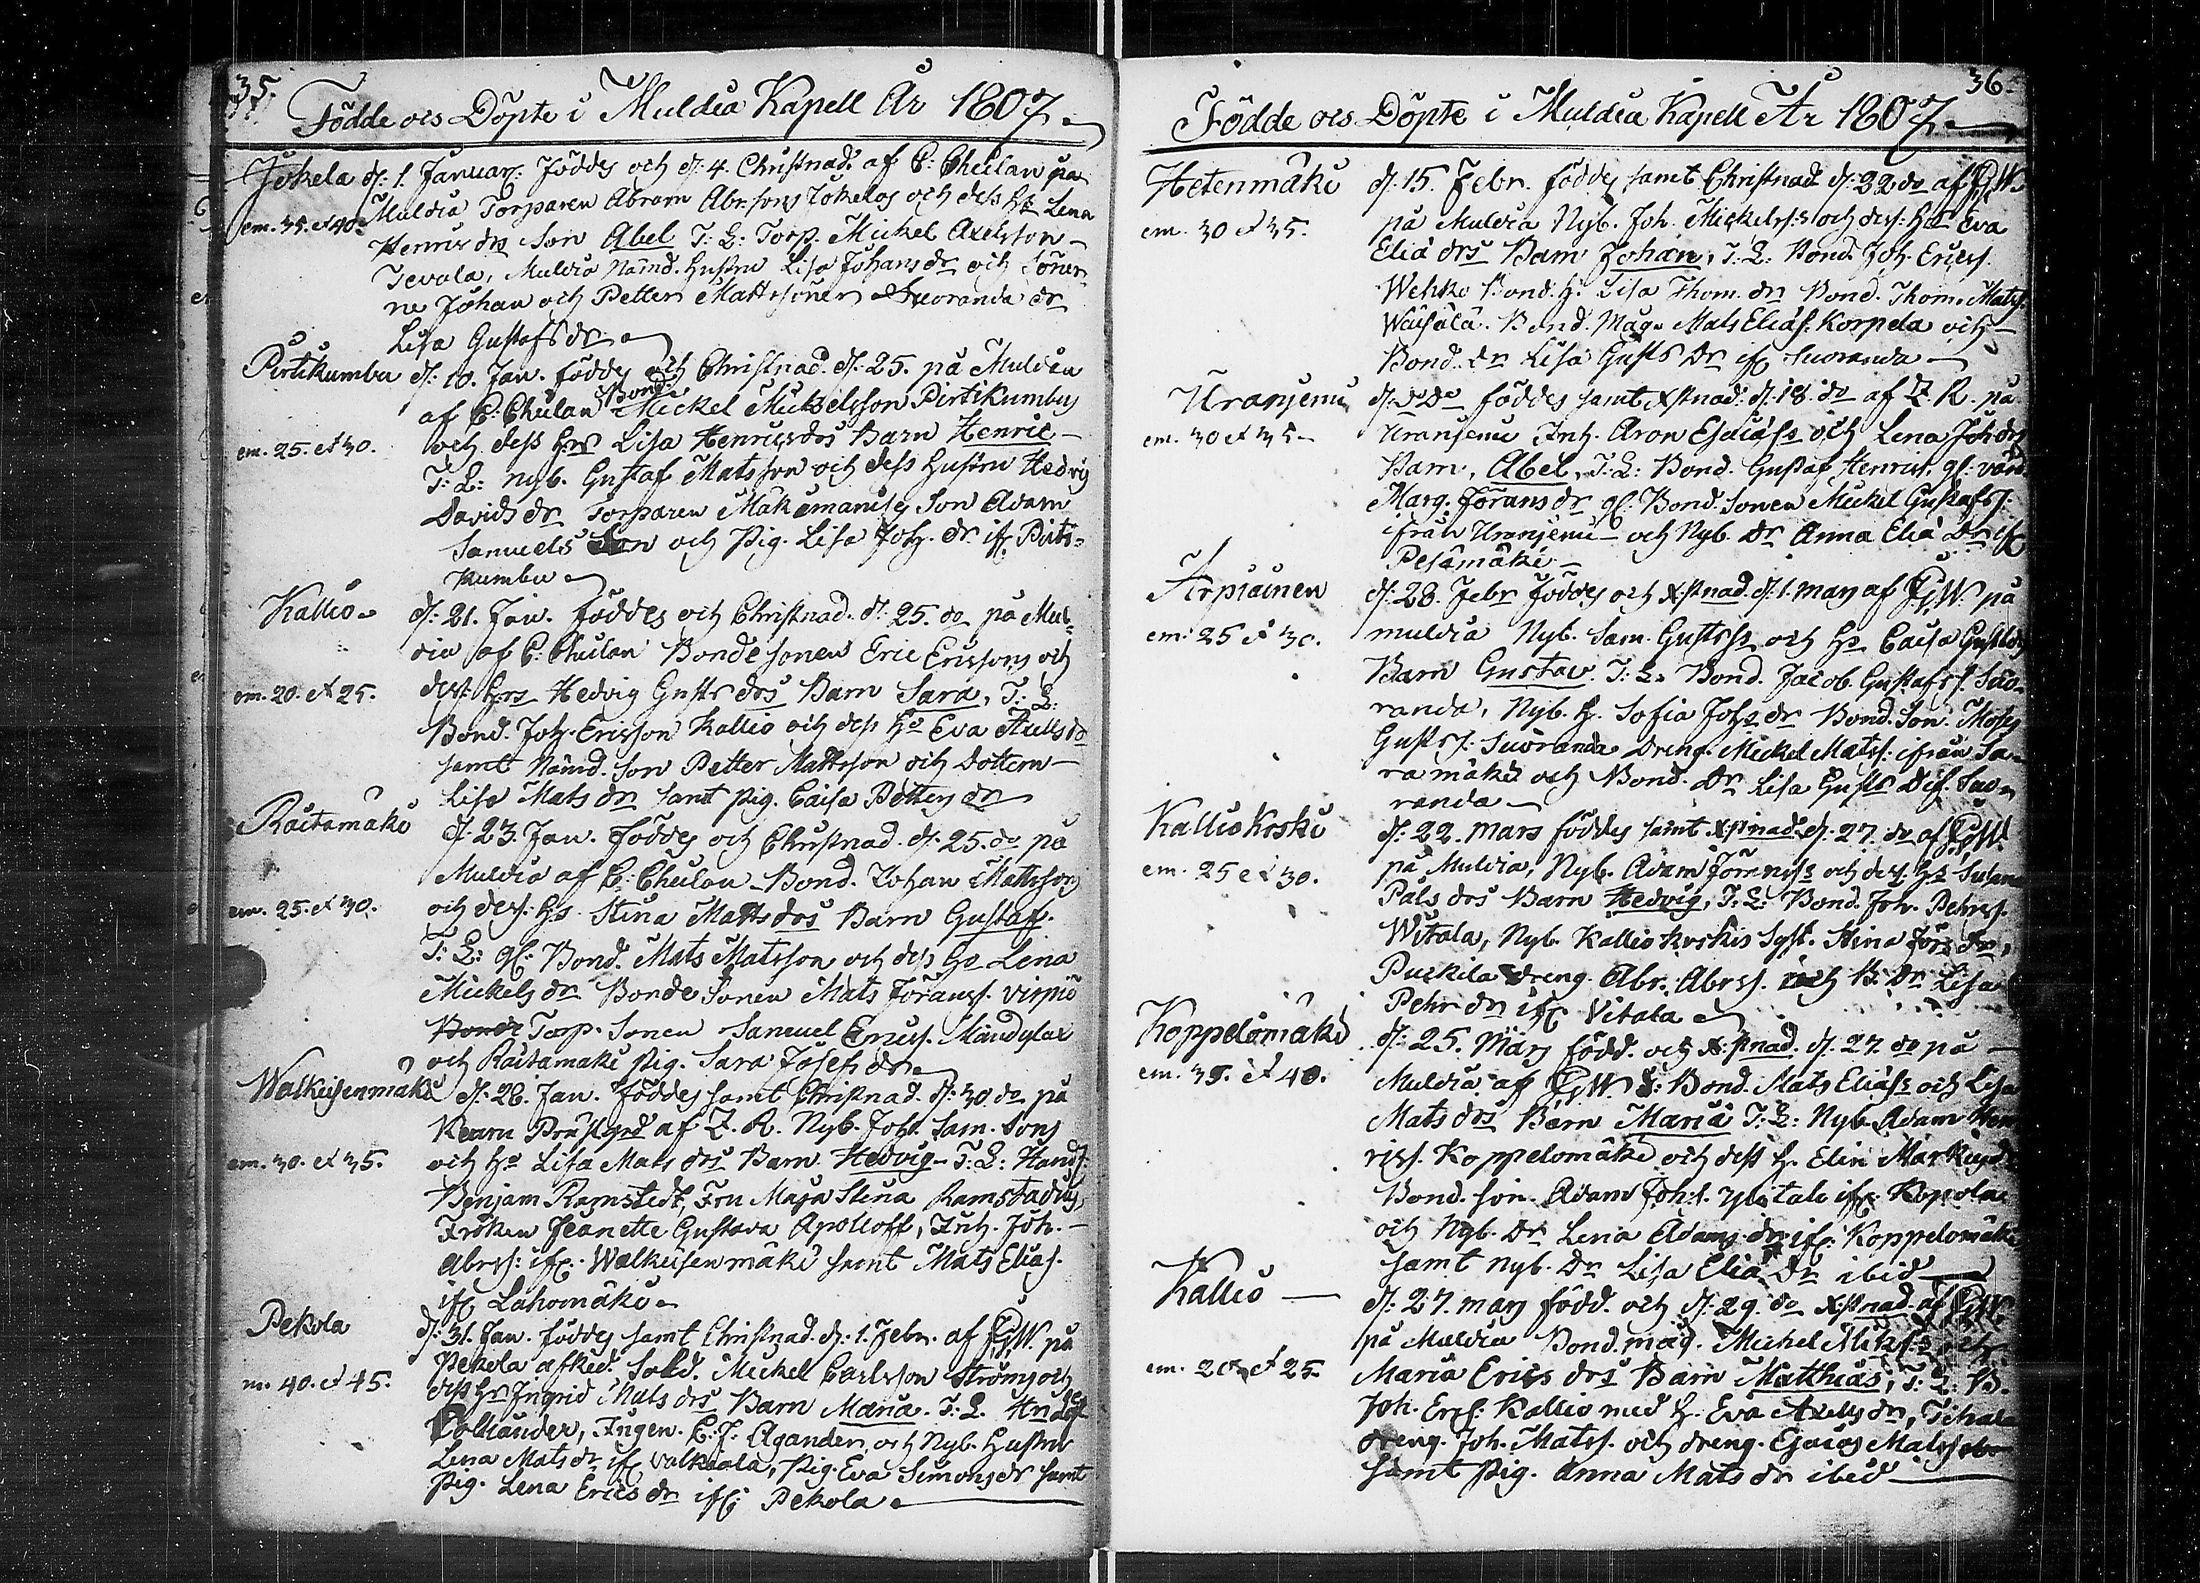 35.
Födde ocs Döpte i Muldia Kapell År 1807.
Jokela d: 1. Januar: föddes och d: 4. Christnad. af C: Cheilan på
em. 35. et 40. Muldia Torparen Abram Abr:sons Jokelas och dess H:s Lena
Henrics drs Son Abel T: L: Torp. Mickel Axelsson
Tevala, Muldia Nämd. Hustru Lisa Johans dr och Söner-
ne Johan och Petter Mattssöner Suoranda dr
Lisa Gustafs dr
Pirtikumbu d: 10. Jan. föddes och Christnad. d: 25. på Muldia
af C: Cheilan Bond. Mickel Mickelsson Pirtikumbus
em. 25. et 30. och dess H:rs Lisa Henricsdrs Barn Henric
T: L: nyb. Gustaf Matsson och dess Hustru Hedvig
Davids dr Torparen Mäkemanises Son Adam
Samuels Son och Pig. Lisa Joh. dr if: Pirti-
kumbu
Kallio d: 21. Jan. föddes och Christnad. d: 25. do på Mul-
dia af C: Cheilan Bondesonen Eric Ericssons och
em. 20. et 25. dess H:rs Hedvig Gusts drs Barn Sara, T: L:
Bond. Joh. Ericsson Kallio och dess H:o Eva Axells dr
samt Nämd. Son Petter Mattsson och dottern
Lisa Mats dr samt Pig. Caisa Petters dr
Raitamäki d: 23. Jan. föddes och Christnad. d: 25. do på
Muldia af C: Cheilan Bond. Johan Mattssons
em. 25. et 30. och dess: H:s Stina Matts drs Barn Gustaff.
T: L: gl: Bond. Mats Matsson och dess H:o Lena
Mickels dr Bonde Sonen Mats Jöranss. Virpiö
Bonde Torp. Sonen Samuel Ericss. Mändylax
och Raitamäki Pig. Sara Josefs dr
Walkeisenmäki d: 28. Jan. föddes samt Christnad. d: 30. do på
Keuru Prästgrd af Z. R. Nyb. Joh. Sam. Sons
em. 30. et 35. och H:s Lisa Mats drs Barn Hedvig. T: L: Hand:
Benjam Ramstedt, Fru Maja Stina Ramstadius,
Fröken Jeanette Gustava Apolloff, Inh. Joh.
Abrss: if: Walkeisenmäki samt Mats Elias.
if: Lahomäki
Pekola d: 31. Jan. föddes samt Christnad. d: 1. Febr. af FGW. på
Pekola afsked. Sold. Mickel Carlsson Ströms och
m. 40. et 45. dess H:rs Ingrid Mats drs Barn Maria. T: L.
Polländer, Jugen. C. J. Agander, och Nyb. Hustru
Lena Mats dr if: Valkeala, Pig. Eva Simons dr samt
Pig. Lena Erics dr if: Pekola
36.
Födde ocs Döpte i Muldia Kapell År 1807.
Hetenmäki d: 15. Febr. föddes samt Christnad d: 22 do af FGW.
em. 30 et 35. på Muldia Nyb. Joh. Mickelss:s och dess: H:rs Eva
Eliä drs Barn Johan, T: L: Bond. Joh. Ericss.
Wehko Bond. H: Lisa Thom. dr Bond. Thom. Matss.
Wäisälä. Bond. Måg. Mats Elias: Korpela och
Bond. dr Lisa Gusts dr if: Suoranda
Uranjenu d: do föddes samt Xstnad: d: 18. do af Z. R. på
em. 30 et 35. Uranjenu Inh. Aron Esaiass och Lena Joh drs
Barn, Abel, T: L: Bond. Gustaf Henricss. gl: värd
Marg. Jörans dr gl: Bond. Sonen Mickel Gustafss:
ifrån Uranjenu och Nyb. dr Anna Eliä dr if:
Pesämäki
Arpiainen d: 28. Febr föddes och Xstnad. d: 1. mars af FGW. på
em: 25 et 30. muldia Nyb. Sam. Gustss:s och H:s Caisa Gusts drs
Barn Gustav. T: L. Bond. Jacob. Gustafss. Suo-
randa, Nyb. H. Sofia Johs dr Bond. Son. Moses
Gustss: Suoranda dreng. Mickel Matss: ifrån Sa-
ramäki och Bond. dr Lisa Gusts d if. Suo-
randa
Kalliokoski d: 22. mars föddes samt Xstnad. d: 27. do af FGW.
em. 25 et 30. på Muldia, Nyb. Adam Jöranss:s och dess: H:s Susan
Påls drs Barn Hedvig, T: L: Bond. Joh. Pehrss.
Witala, Nyb. Kalliokoskis Syst. Stina Jörs dr,
Puckila dreng. Abr. Abrss. och B. dr Lisa
Pehr dr if: Vitala
Koppelomäki d: 25. Mars född. och Xstnad. d: 27. do på
em. 35. et 40. Muldia af FGW. Bond. Mats Eliass:s och Lisa
Mats drs Barn Maria T: L: Nyb. Adam Hen-
ricss. Koppelomäki och dess H. Elin Marki dr
Bond. son. Adam Joh:s. Ylitalo if: Kopola
och Nyb. dr Lena Adams dr if: Koppelomäki
samt nyb. dr Lisa Eliä dr ibid
Kallio d: 27. mars född. och d: 29. do Xstnad. af FGW.
på Muldia Bond. måg. Michel Micks:s och
em. 20. et 25. Maria Erics drs Barn Matthias, T: L: B.
Joh. Ercs: Kallio med H. Eva Axells dr, Tihala
dreng. Joh. Matss. och dreng. Esaias Matss
samt Pig. Anna Mats dr ibid